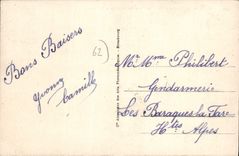 Bons Baisers
Yvonne
Camille
62
Mr Mme Philibert
Gendarmerie
Les Baraques La Fare
Htes Alpes